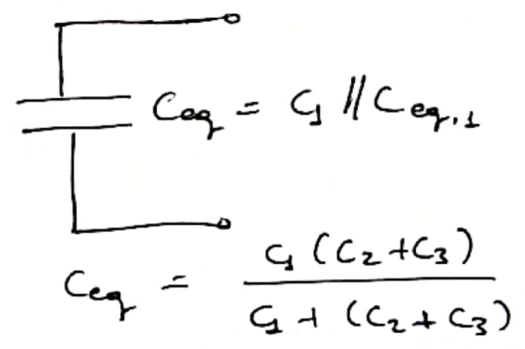 Ceq = C1 // Ceq,1
Ceq = C1 (C2 + C3) / C1 + (C2 + C3)